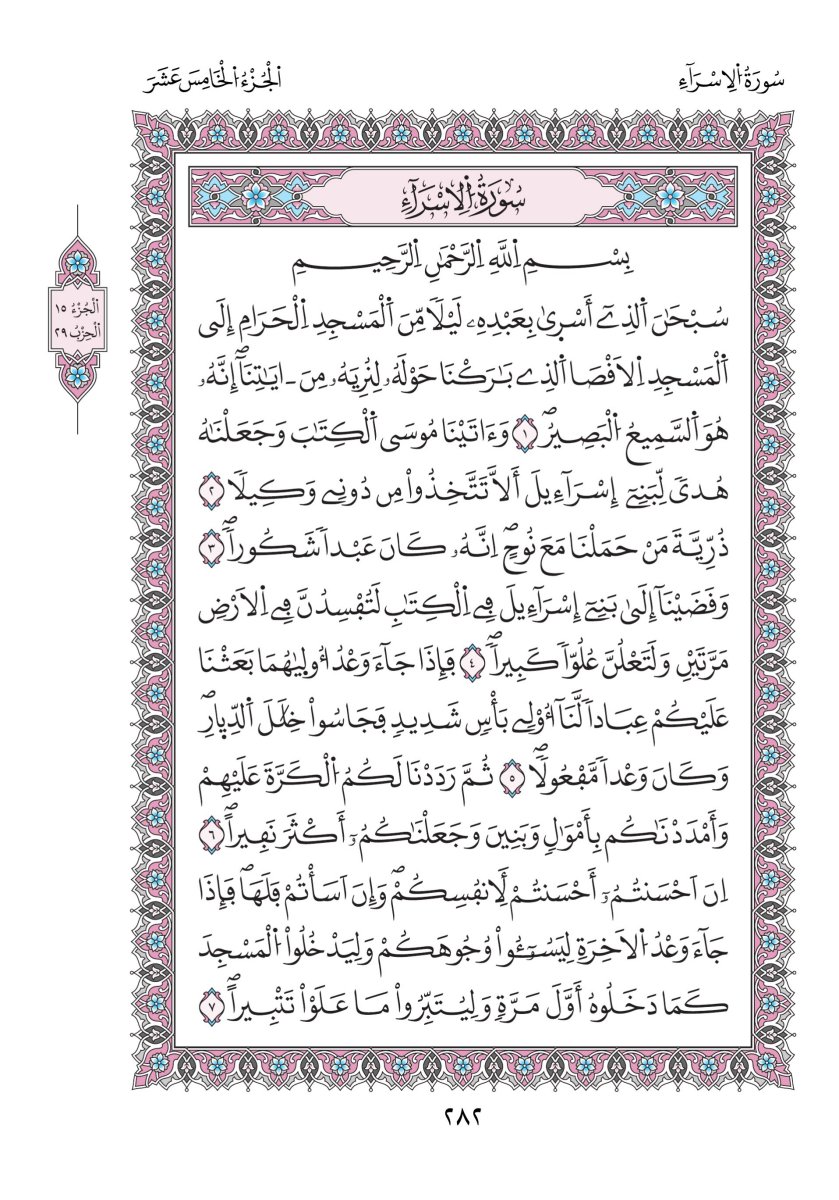 سُورَةُ اُ۬لِاسْرَآءِ
اَ۬لْجُزْءُ اُ۬لْخَامِسَ عَشَرَ
سُورَةُ اُ۬لِاسْرَآءِ
اَ۬لْجُزْءُ ١٥
اَ۬لْحِزْبُ ٢٩
بِسْمِ اِ۬للَّهِ اِ۬لرَّحْمَٰنِ اِ۬لرَّحِيمِ
سُبْحَٰنَ اَ۬لذِےٓ أَسْر۪يٰ بِعَبْدِهِۦ لَيْلاٗ مِّنَ اَ۬لْمَسْجِدِ اِ۬لْحَرَامِ إِلَي
اَ۬لْمَسْجِدِ اِ۬لَاقْصَا اَ۬لذِے بَٰرَكْنَا حَوْلَهُۥ لِنُرِيَهُۥ مِنَ ـ اٰيَٰتِنَآۖ إِنَّهُۥ
هُوَ اَ۬لسَّمِيعُ اُ۬لْبَصِيرُۖ ١ وَءَاتَيْنَا مُوسَي اَ۬لْكِتَٰبَ وَجَعَلْنَٰهُ
هُديٗ لِّبَنِےٓ إِسْرَآءِيلَ أَلَّا تَتَّخِذُواْ مِن دُونِے وَكِيلاٗ ٢
ذُرِّيَّةَ مَنْ حَمَلْنَا مَعَ نُوحٍۖ اِنَّهُۥ كَانَ عَبْداٗ شَكُوراٗۖ ٣
وَقَضَيْنَآ إِلَيٰ بَنِےٓ إِسْرَآءِيلَ فِے اِ۬لْكِتَٰبِ لَتُفْسِدُنَّ فِے اِ۬لَارْضِ
مَرَّتَيْنِ وَلَتَعْلُنَّ عُلُوّاٗ كَبِيراٗۖ ٤ فَإِذَا جَآءَ وَعْدُ أُول۪يٰهُمَا بَعَثْنَا
عَلَيْكُمْ عِبَاداٗ لَّنَآ أُوْلِے بَأْسٖ شَدِيدٖ فَجَاسُواْ خِلَٰلَ اَ۬لدِّي۪ارِۖ
وَكَانَ وَعْداٗ مَّفْعُولاٗۖ ٥ ثُمَّ رَدَدْنَا لَكُمُ اُ۬لْكَرَّةَ عَلَيْهِمْ
وَأَمْدَدْنَٰكُم بِأَمْوَٰلٖ وَبَنِينَ وَجَعَلْنَٰكُمُۥٓ أَكْثَرَ نَفِيراٗۖ ٦
اِنَ اَحْسَنتُمُۥٓ أَحْسَنتُمْ لِأَنفُسِكُمْۖ وَإِنَ اَسَأْتُمْ فَلَهَاۖ فَإِذَا
جَآءَ وَعْدُ اُ۬لَاخِرَةِ لِيَسُـۥٓـُٔواْ وُجُوهَكُمْ وَلِيَدْخُلُواْ اُ۬لْمَسْجِدَ
كَمَا دَخَلُوهُ أَوَّلَ مَرَّةٖ وَلِيُتَبِّرُواْ مَا عَلَوْاْ تَتْبِيراٗۖ ٧
٢٨٢